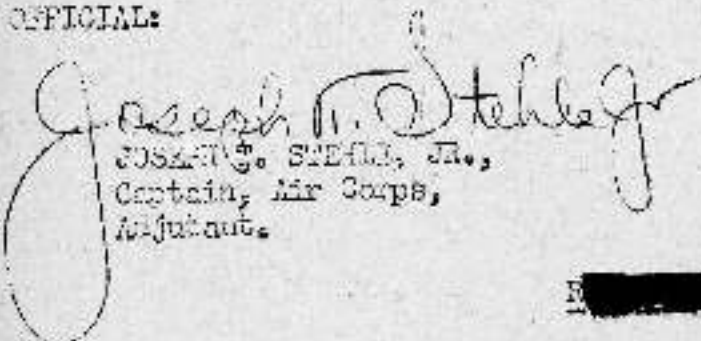 OFFICIAL:
Joseph T. Stehle Jr
JOSEPH T. STEHLE, JR.,
Captain, Air Corps,
Adjutant.